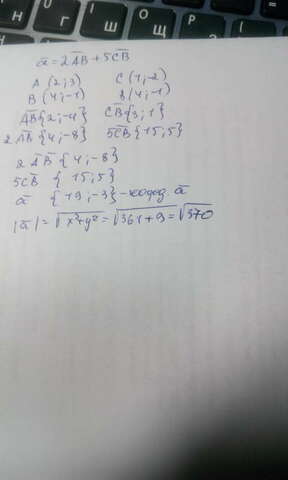 ā = 2A̅B̅ + 5C̅B̅
A (2; 3) C (1; -2)
B (4; -1) B (4; -1)
A̅B̅ {2; -4} C̅B̅ {3; 1}
2A̅B̅ {4; -8} 5C̅B̅ {15; 5}
2A̅B̅ {4; -8}
5C̅B̅ {15; 5}
ā {19; -3} - коорд ā
|ā| = √x²+y² = √361+9 = √370